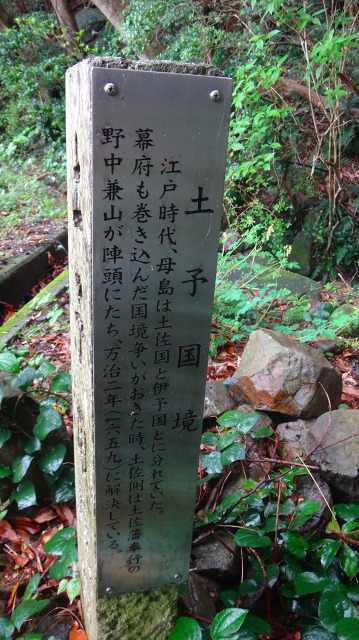 土予国境
江戸時代、母島は土佐国と伊予国とに分れていた。
幕府も巻き込んだ国境争いがおきた時、土佐側は土佐藩奉行の
野中兼山が陣頭にたち、万治二年(一六五九)に解決している。